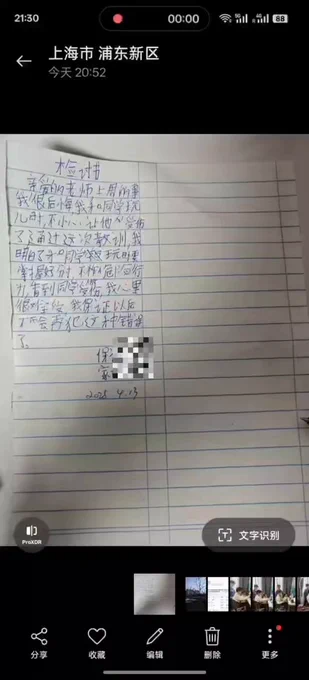 21:30
00:00
88
上海市 浦东新区
今天 20:52
检讨
亲爱的老师上周的事
我很后悔,我和同学玩
儿时,不小心让他受伤
了通过这次教训,我
明白了和同学玩时要
掌握好分寸,不
力看到同学受伤,我心里
很难受,我保证以后
不会再犯这种错误
了。
2025 4.13
ProXDR
文字识别
分享
收藏
编辑
删除
更多